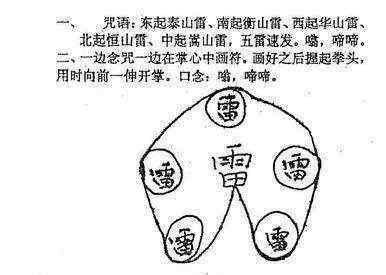 一、 咒语：东起泰山雷、南起衡山雷、西起华山雷、
北起恒山雷、中起嵩山雷，五雷速发。噏，啼啼。
二、一边念咒一边在掌心中画符。画好之后握起拳头，
用时向前一伸开掌。口念：噏，啼啼。
雷
雷
雷
雷
雷
雷